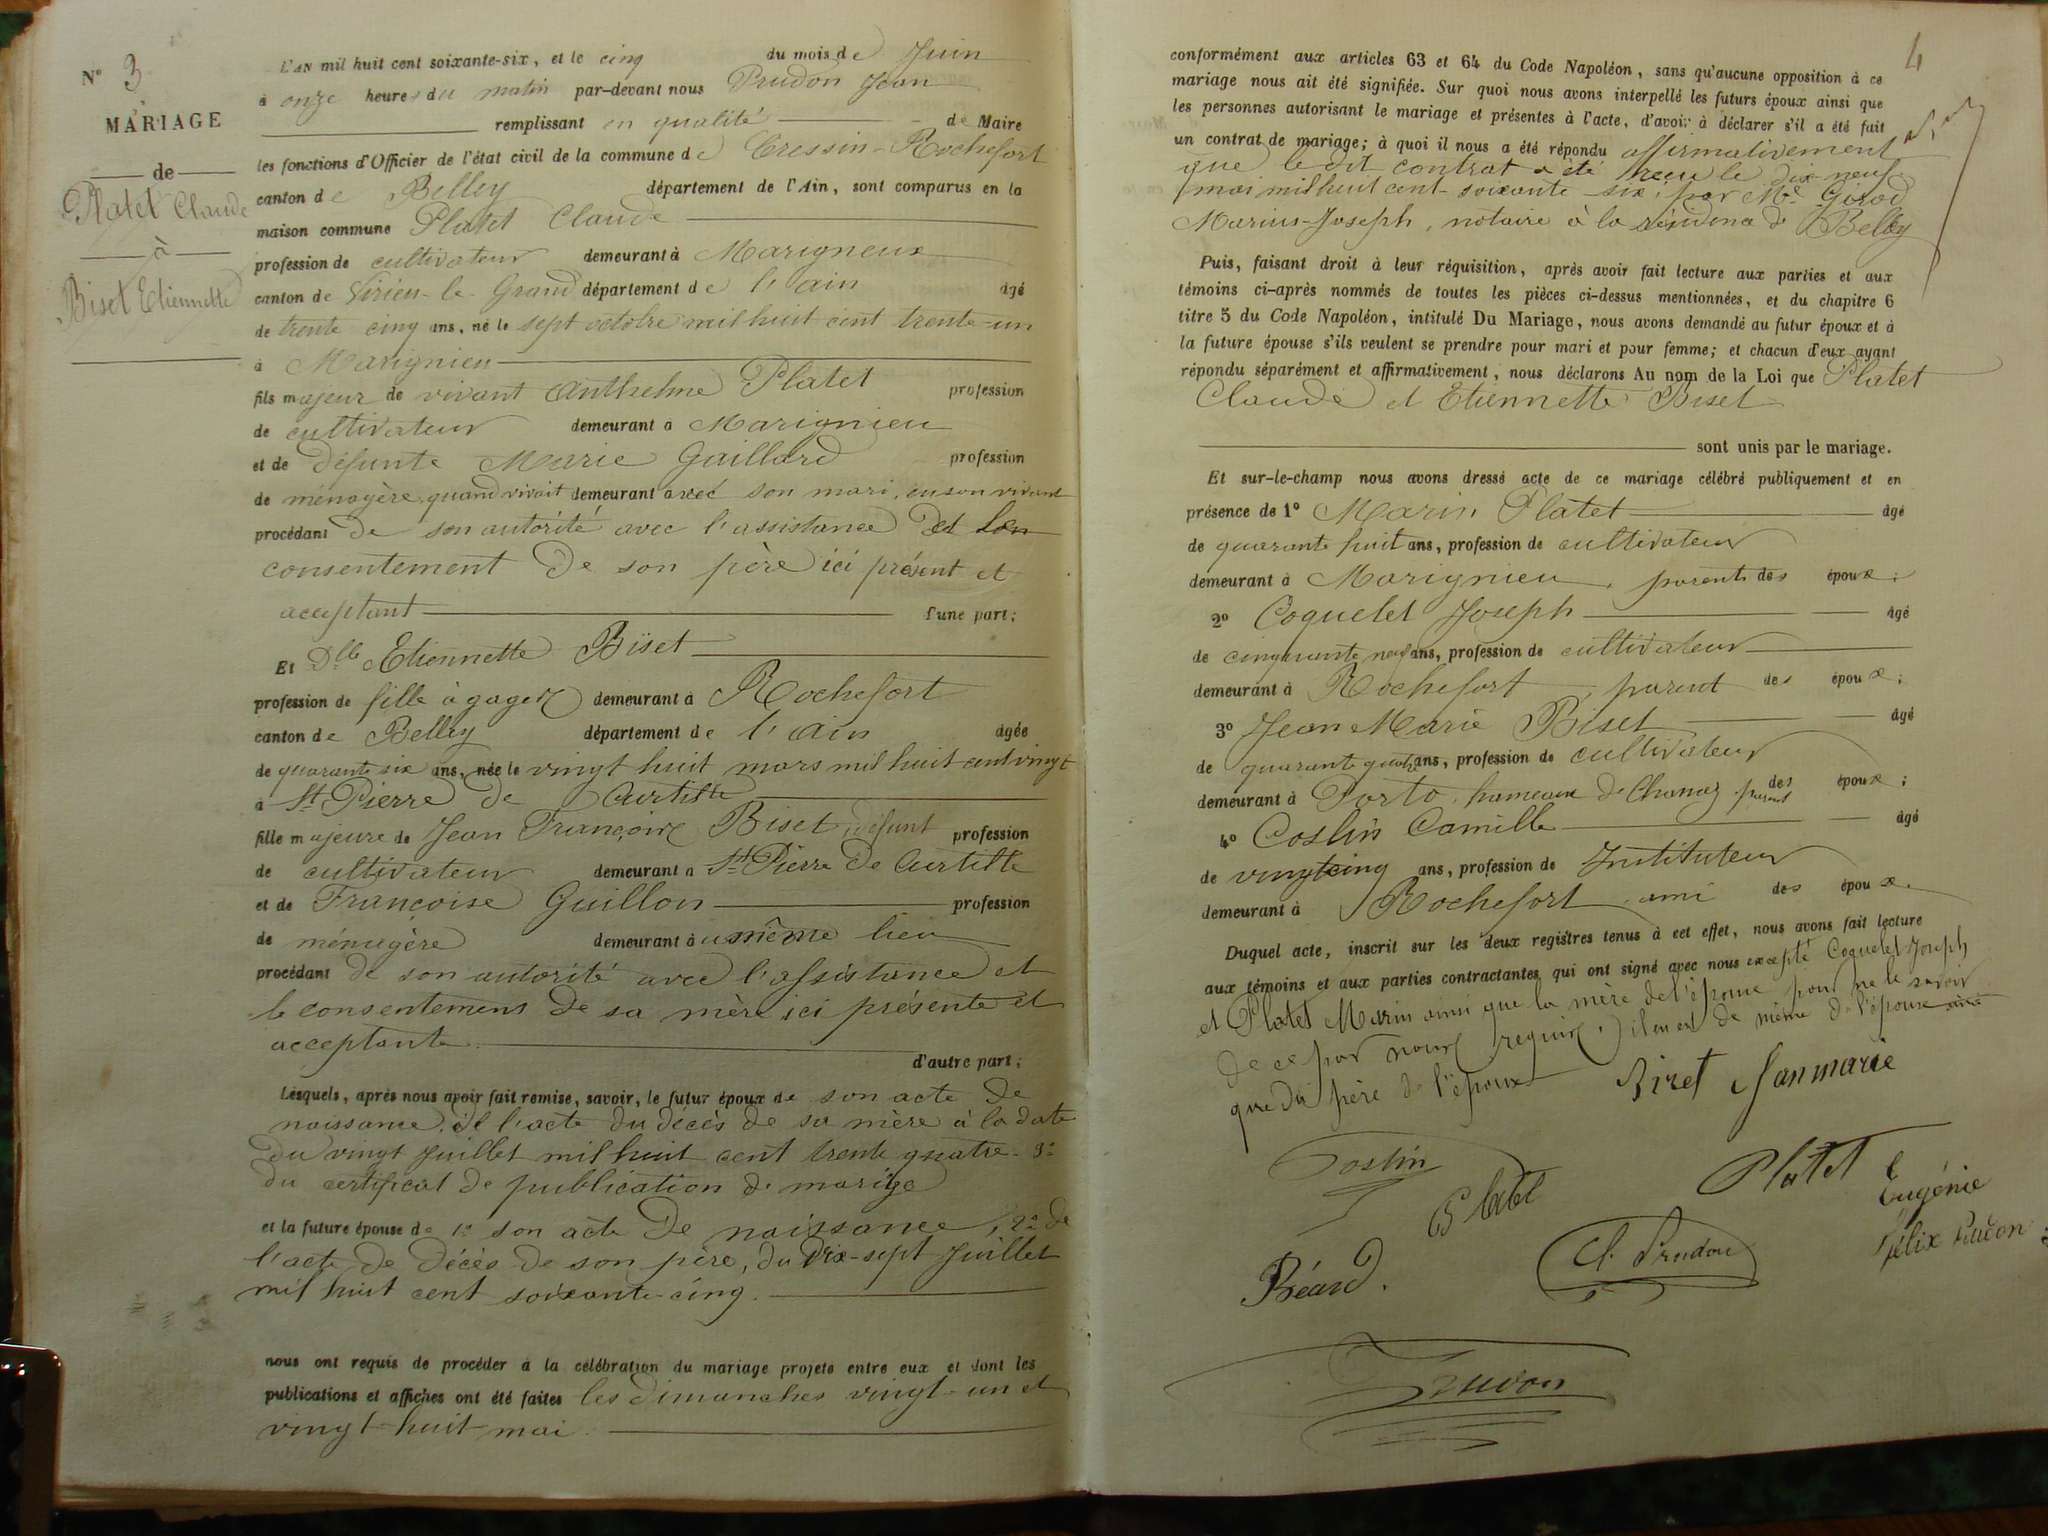 N° 3
MARIAGE
de
Platet Claude
à
Biset Etiennette
L'AN mil huit cent soixante-six, et le cinq du mois de Juin
à onze heures du matin par-devant nous Prudon Jean
remplissant en qualité de Maire
les fonctions d'Officier de l'état civil de la commune de Cressin-Rochefort
canton de Belley département de l'Ain, sont comparus en la
maison commune Platet Claude
profession de cultivateur demeurant à Marigneux
canton de Virieu-le-Grand département de l'ain âgé
de trente cinq ans, né le sept octobre mil huit cent trente-un
à Marignieu
fils majeur de vivant Anthelme Platet profession
de cultivateur demeurant à Marignieu
et de défunte Marie Gaillard profession
de ménagère quand vivait demeurant avec son mari, en son vivant
procédant de son autorité avec l'assistance et
consentement de son père ici présent et
acceptant d'une part;
Et Dlle Etiennette Biset
profession de fille à gages demeurant à Rochefort
canton de Belley département de l'ain âgée
de quarante six ans, née le vingt huit mars mil huit cent vingt
à St Pierre de Curtille
fille majeure de Jean François Biset, défunt profession
de cultivateur demeurant à St Pierre de Curtille
et de Françoise Guillon profession
de ménagère demeurant au même lieu
procédant de son autorité avec l'assistance et
le consentement de sa mère ici présente et
acceptante d'autre part;
Lesquels, après nous avoir fait remise, savoir, le futur époux de son acte de
naissance, de l'acte du décès de sa mère à la date
du vingt Juillet mil huit cent trente quatre. 3°
du certificat de publication de mariage
et la future épouse de 1° son acte de naissance, 2° de
l'acte de décès de son père, du dix-sept Juillet
mil huit cent soixante-cinq.
nous ont requis de procéder à la célébration du mariage projeté entre eux et dont les
publications et affiches ont été faites les dimanches vingt-un et
vingt-huit mai
4
conformément aux articles 63 et 64 du Code Napoléon, sans qu'aucune opposition à ce
mariage nous ait été signifiée. Sur quoi nous avons interpellé les futurs époux ainsi que
les personnes autorisant le mariage et présentes à l'acte, d'avoir à déclarer s'il a été fait
un contrat de mariage; à quoi il nous a été répondu affirmativement
que le dit contrat a été reçu le dix-neuf
mai mil huit cent soixante six, par Me Girod
Marius-Joseph, notaire à la résidence de Belley
Puis, faisant droit à leur réquisition, après avoir fait lecture aux parties et aux
témoins ci-après nommés de toutes les pièces ci-dessus mentionnées, et du chapitre 6
titre 5 du Code Napoléon, intitulé Du Mariage, nous avons demandé au futur époux et à
la future épouse s'ils veulent se prendre pour mari et pour femme; et chacun d'eux ayant
répondu séparément et affirmativement, nous déclarons Au nom de la Loi que Platet
Claude et Etiennette Biset
sont unis par le mariage.
Et sur-le-champ nous avons dressé acte de ce mariage célébré publiquement et en
présence de 1° Marin Platet âgé
de quarante huit ans, profession de cultivateur
demeurant à Marignieu, parent des époux;
2° Coquelet Joseph âgé
de cinquante neuf ans, profession de cultivateur
demeurant à Rochefort, parent des époux;
3° Jean Marie Biset âgé
de quarante quatre ans, profession de cultivateur
demeurant à Porto, hameau de Chanaz parent des époux;
4° Costin Camille âgé
de vingt cinq ans, profession de Instituteur
demeurant à Rochefort, ami des époux.
Duquel acte, inscrit sur les deux registres tenus à cet effet, nous avons fait lecture
aux témoins et aux parties contractantes, qui ont signé avec nous excepté Coquelet Joseph
et Platet Marin ainsi que la mère de l'épouse pour ne le savoir
de ce par nous requis, il en est de même de l'épouse ainsi
que du père de l'époux
Biret Janmarie
Costin
Platet
Platet
Eugénie
Félix Prudon
Béard.
Cl. Prudon
Prudon